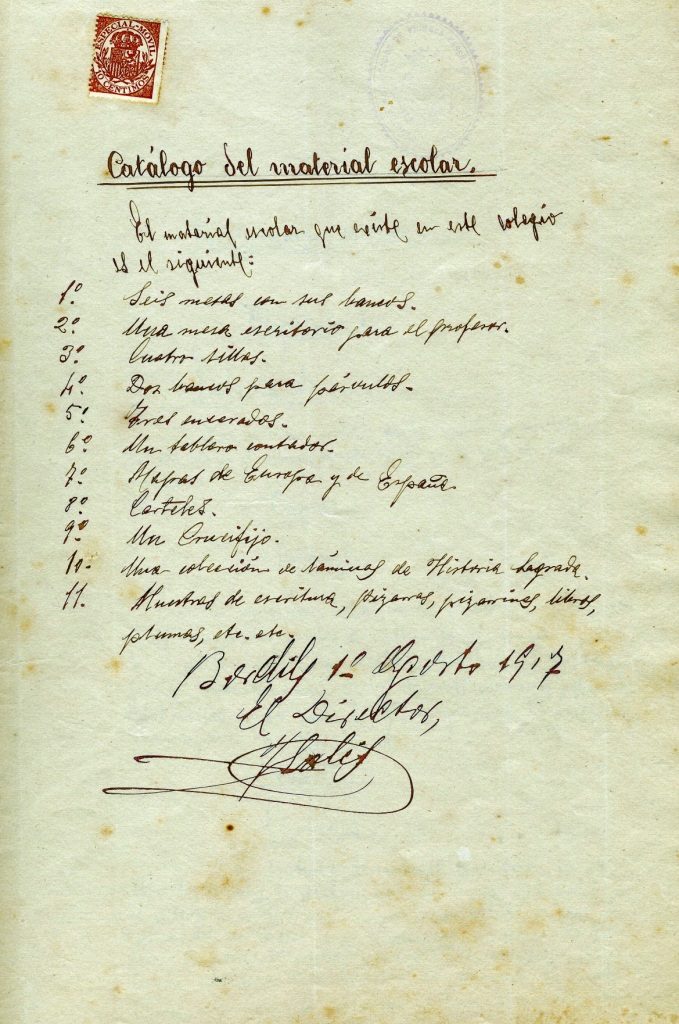 ESPECIAL MOVIL
10 CENTIMOS
Catálogo del material escolar.
El material escolar que existe en este colegio
es el siguiente:
1º Seis mesas con sus bancos.
2º Una mesa escritorio para el profesor.
3º Cuatro sillas.
4º Dos bancos para párvulos.
5º Tres encerados.
6º Un tablero contador.
7º Mapas de Europa y de España
8º Carteles.
9º Un Crucifijo.
10. Una colección de láminas de Historia Sagrada.
11. Muestras de escritura, pizarras, pizarrines, libros,
plumas, etc. etc.
Bordils 1º Agosto 1917
El Director,